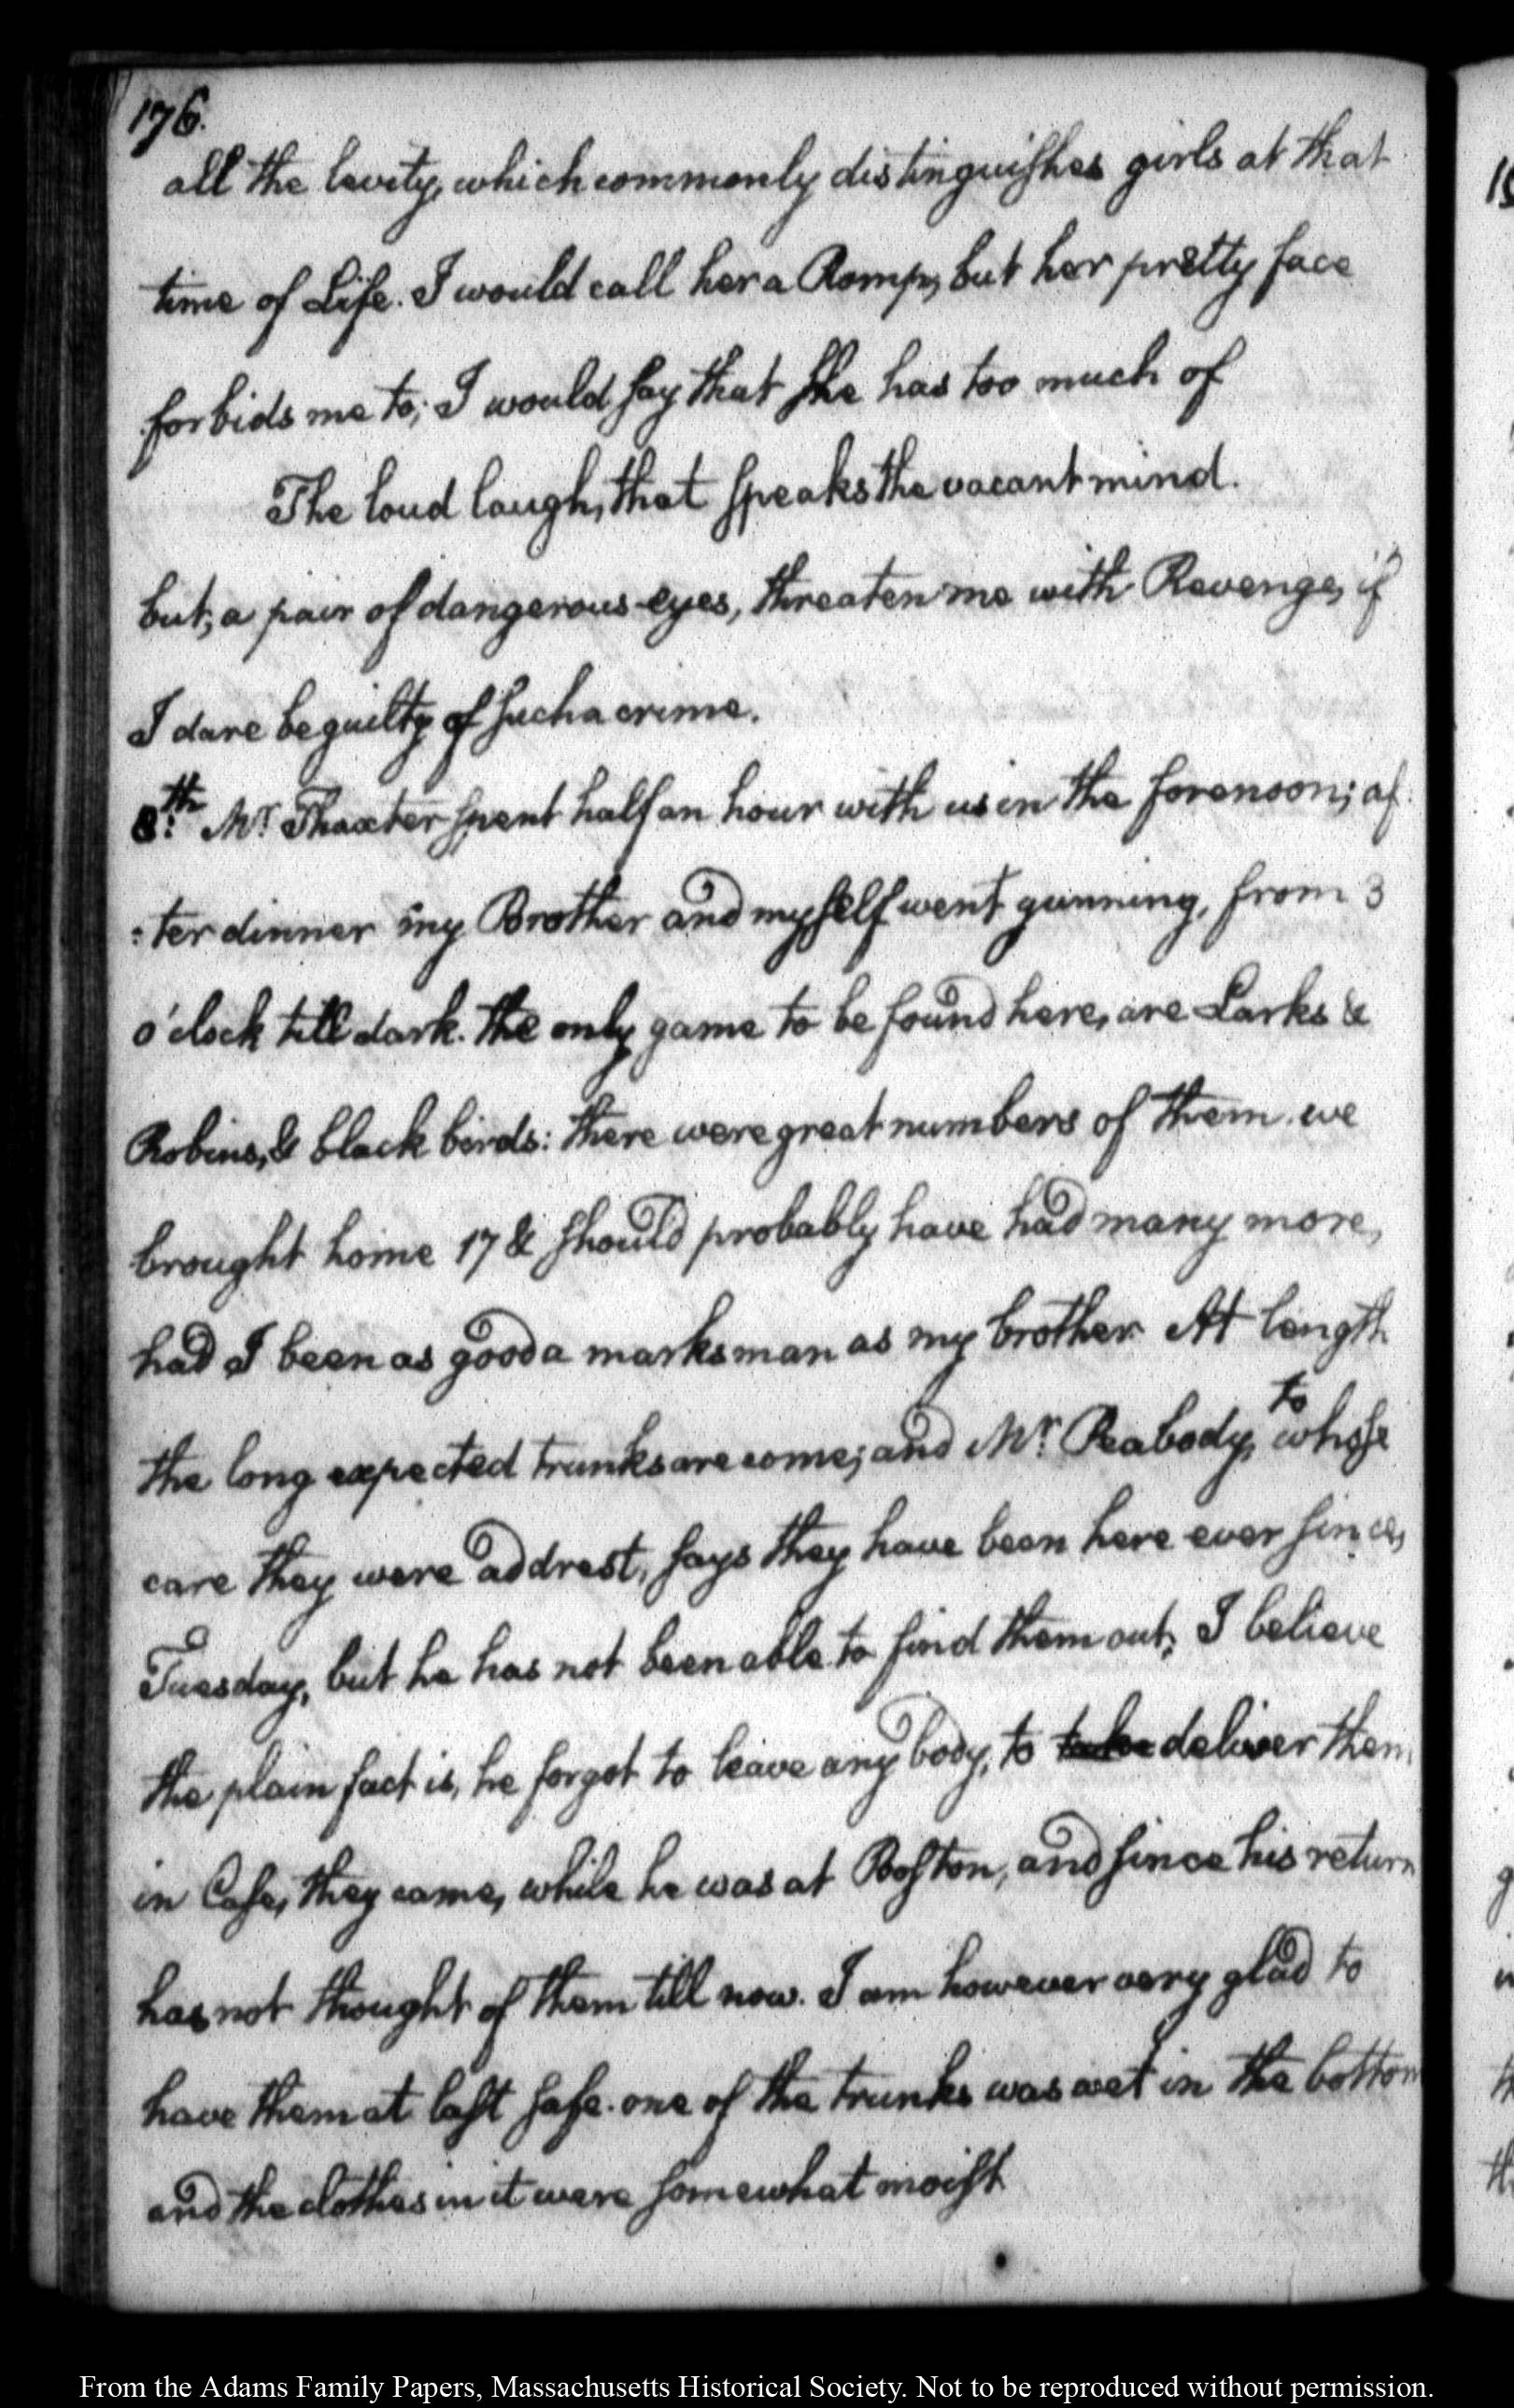 176.
all the levity, which commonly distinguishes girls at that
time of Life. I would call her a Romp, but her pretty face
forbids me to; I would say that she has too much of
The loud laugh, that speaks the vacant mind.
but, a pair of dangerous eyes, threaten me with Revenge, if
I dare be guilty of such a crime.
8th. Mr. Thaxter spent half an hour with us in the forenoon; af
:ter dinner my Brother and myself went gunning, from 3
o'clock till dark. the only game to be found here, are Larks &
Robins, & black birds: there were great numbers of them. we
brought home 17 & should probably have had many more,
had I been as good a marksman as my brother. At length
the long expected trunks are come; and Mr. Peabody, to whose
care they were addrest, says they have been here ever since,
Tuesday, but he has not been able to find them out, I believe
the plain fact is, he forgot to leave any body, to take deliver them
in Case, they came, while he was at Boston, and since his return
has not thought of them till now. I am however very glad to
have them at last safe. one of the trunks was wet in the bottom
and the clothes in it were somewhat moist
From the Adams Family Papers, Massachusetts Historical Society. Not to be reproduced without permission.